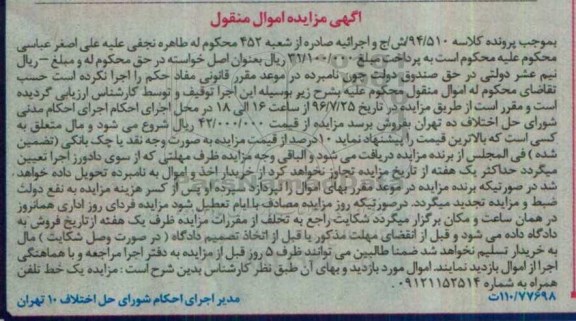 آگهی مزایده اموال منقول
بموجب پرونده کلاسه ۹۴/۵۱۰/ش/ج و اجرائیه صادره از شعبه ۴۵۲ محکوم له طاهره نجفی علیه علی اصغر عباسی
محکوم علیه محکوم است به پرداخت مبلغ ۳۱/۱۰۰/۰۰۰ ریال بعنوان اصل خواسته در حق محکوم له و مبلغ – ریال
نیم عشر دولتی در حق صندوق دولت چون نامبرده در موعد مقرر قانونی مفاد حکم را اجرا نکرده است حسب
تقاضای محکوم له اموال منقول محکوم علیه بشرح زیر بوسیله این اجرا توقیف و توسط کارشناس ارزیابی گردیده
است و مقرر است از طریق مزایده در تاریخ ۹۶/۷/۲۵ از ساعت ۱۶ الی ۱۸ در محل اجرای احکام اجرای احکام مدنی
شورای حل اختلاف ده تهران بفروش برسد مزایده از قیمت ۴۲/۰۰۰/۰۰۰ ریال شروع می شود و مال متعلق به
کسی است که بالاترین قیمت را پیشنهاد نماید ۱۰ درصد از قیمت مزایده به صورت وجه نقد یا چک بانکی (تضمین
شده) فی المجلس از برنده مزایده دریافت می شود و الباقی وجه مزایده ظرف مهلتی که از سوی دادورز اجرا تعیین
میگردد حداکثر یک هفته از تاریخ مزایده تجاوز نخواهد کرد از خریدار اخذ و اموال به نامبرده تحویل داده خواهد
شد در صورتیکه برنده مزایده در موعد مقرر بهای اموال را نپردازد سپرده او پس از کسر هزینه مزایده به نفع دولت
ضبط و مزایده تجدید میگردد. درصورتیکه روز مزایده مصادف با ایام تعطیل شود مزایده فردای روز اداری همانروز
در همان ساعت و مکان برگزار میگردد شکایت راجع به تخلف از مقررات مزایده ظرف یک هفته از تاریخ فروش به
دادگاه داده می شود و قبل از انقضای مهلت مذکور یا قبل از اتخاذ تصمیم دادگاه (در صورت وصل شکایت) مال
به خریدار تسلیم نخواهد شد ضمنا طالبین می توانند ظرف ۵ روز قبل از مزایده به دفتر اجرا مراجعه و با هماهنگی
اجرا از اموال بازدید نمایند. اموال مورد بازدید و بهای آن طبق نظر کارشناس بدین شرح است: مزایده یک خط تلفن
همراه به شماره ۰۹۱۲۱۱۵۲۵۱۴.
۱۱۰/۷۷۶۹۸ت
مدیر اجرای احکام شورای حل اختلاف ۱۰ تهران